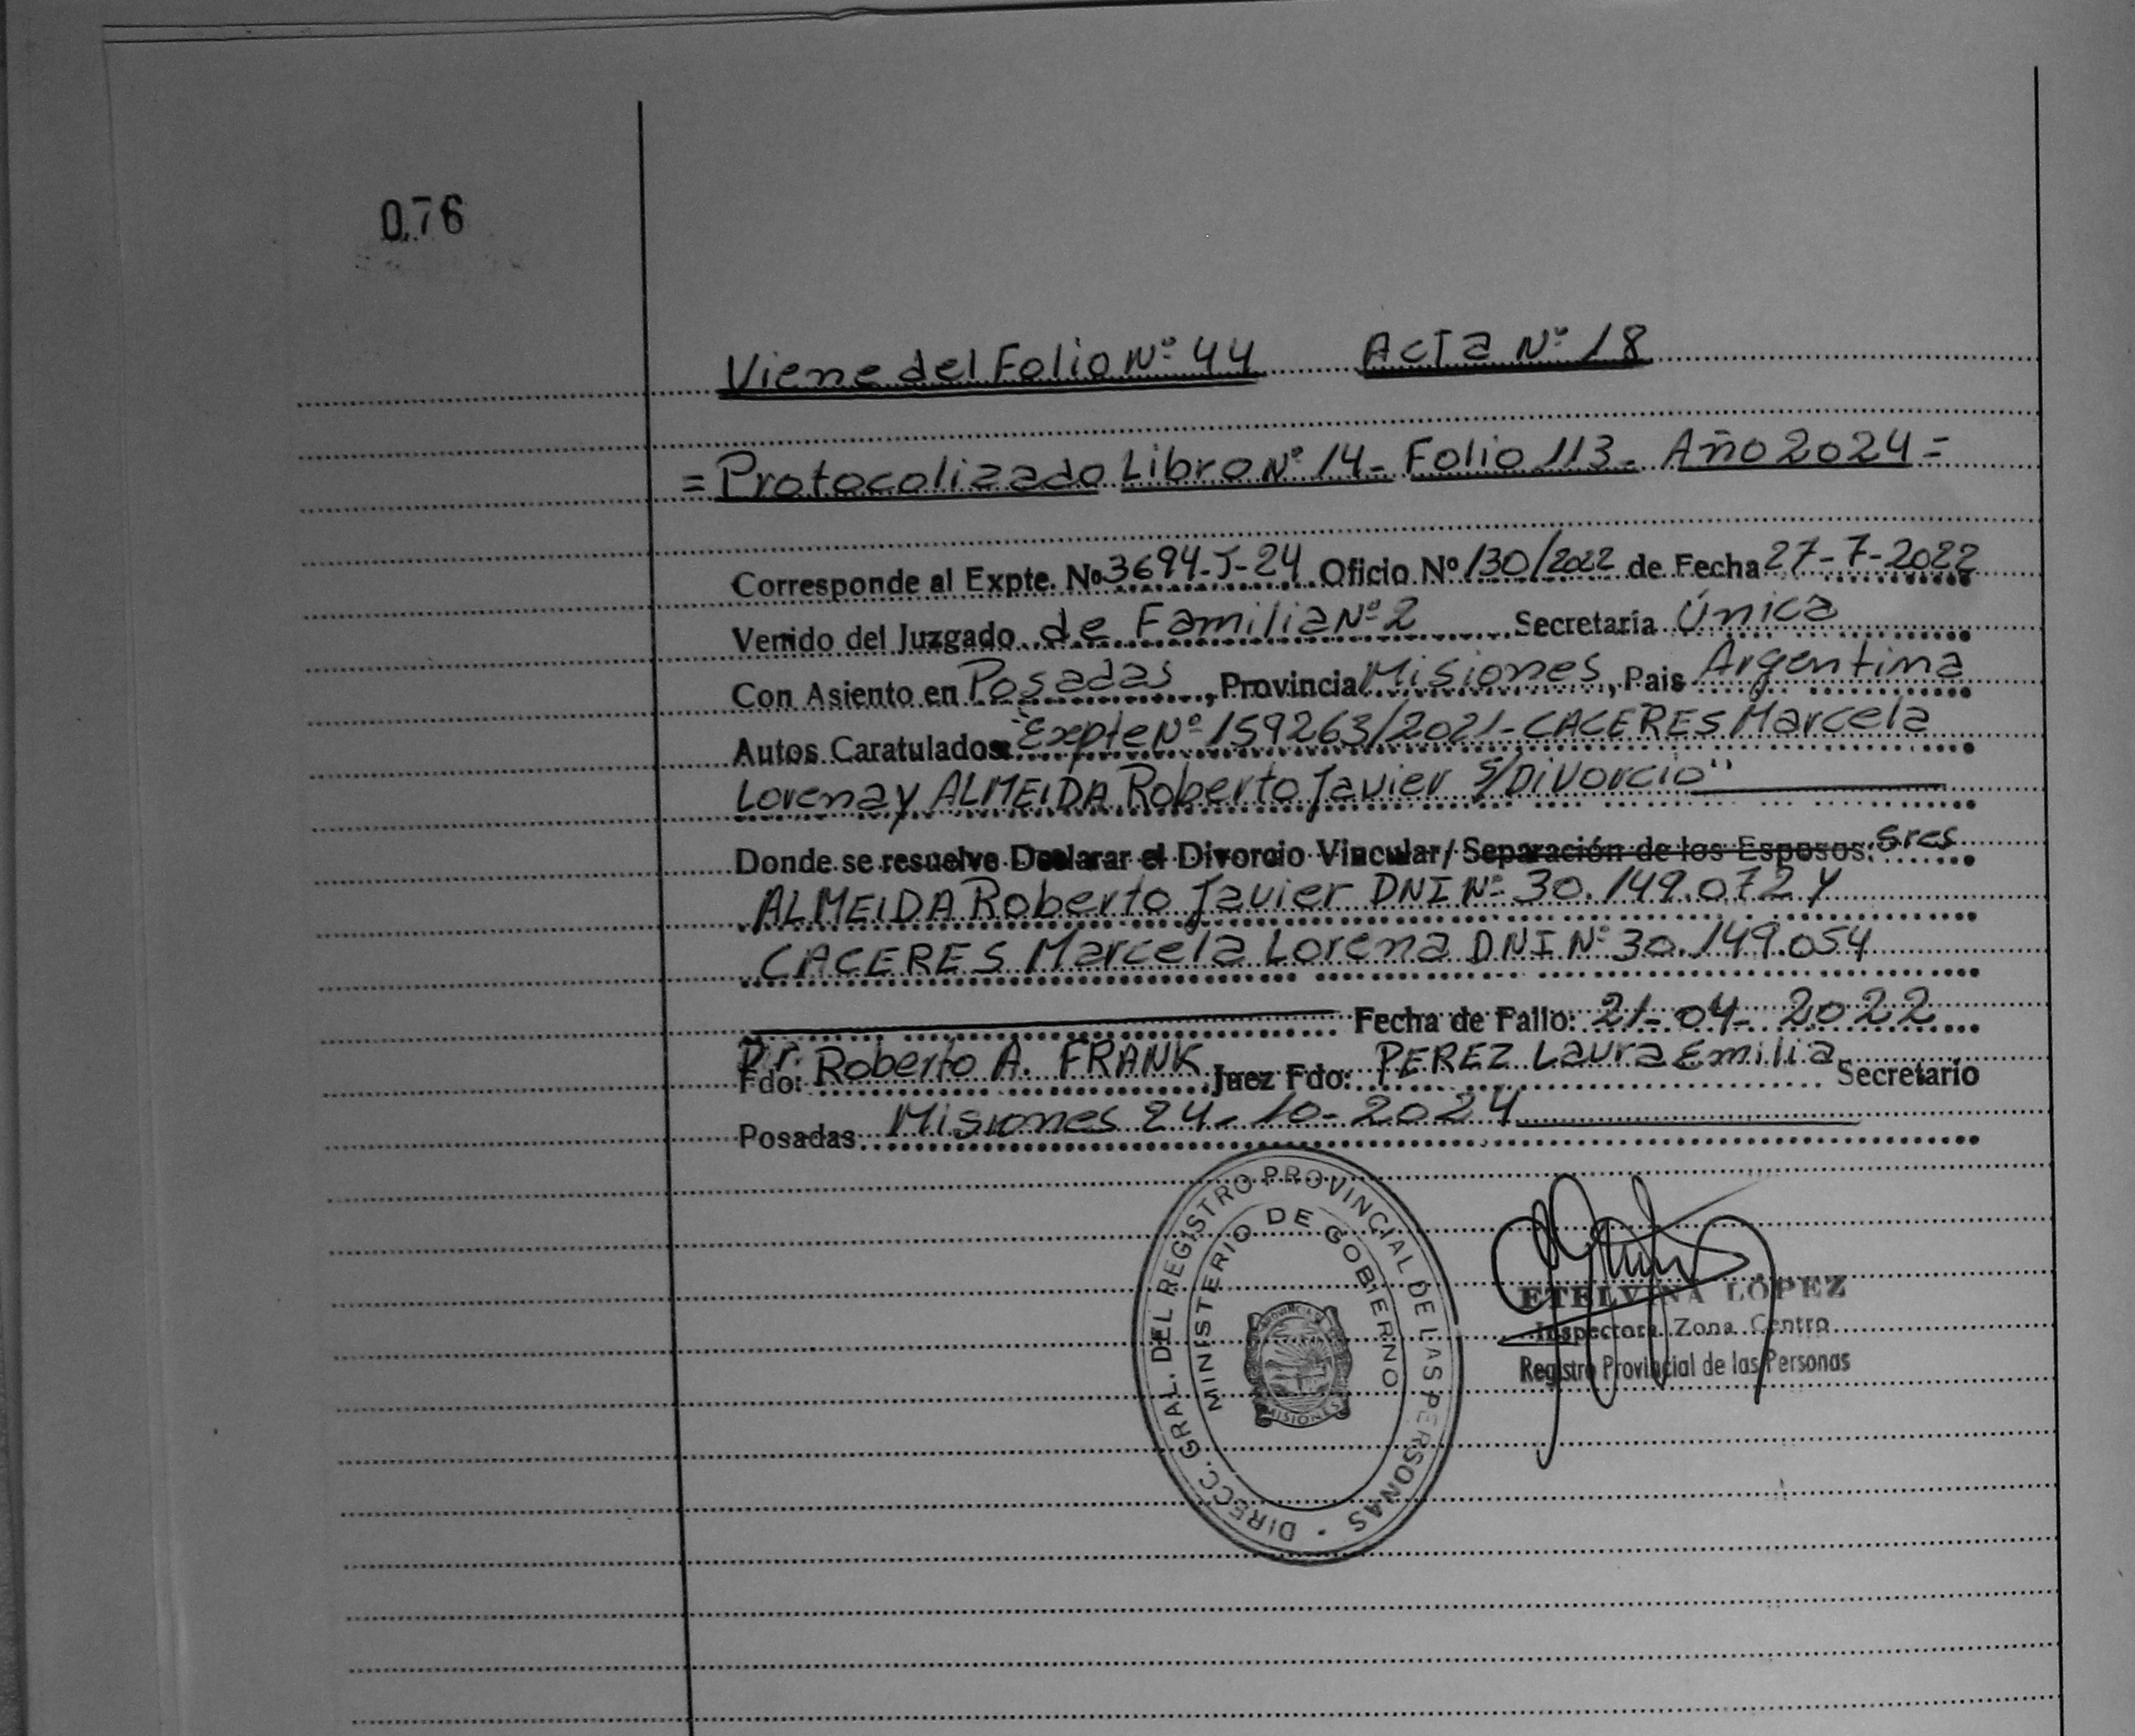 076
Viene del Folio Nº 44 Acta Nº 18
= Protocolizado Libro Nº 14 - Folio 113 - Año 2024 =
Corresponde al Expte. Nº 3694-J-24 Oficio Nº 130/2022 de Fecha 27-7-2022
Venido del Juzgado de Familia Nº 2 Secretaría Única
Con Asiento en Posadas, Provincia Misiones, Pais Argentina
Autos Caratulados: "Expte Nº 159263/2021 - CACERES Marcela
Lorena y ALMEIDA Roberto Javier S/Divorcio"
Donde se resuelve Declarar el Divorcio Vincular/ Separación de los Esposos: Sres
ALMEIDA Roberto Javier DNI Nº 30.149.072 y
CACERES Marcela Lorena DNI Nº 30.149.054
Fecha de Fallo: 21-04-2022
Fdo: Dr. Roberto A. FRANK Juez Fdo: PEREZ Laura Emilia Secretario
Posadas. Misiones 24-10-2024
DIRECC. GRAL. DEL REGISTRO PROVINCIAL DE LAS PERSONAS
MINISTERIO DE GOBIERNO
PROVINCIA DE
MISIONES
ETELVINA LÓPEZ
Inspectora Zona Centro
Registro Provincial de las Personas